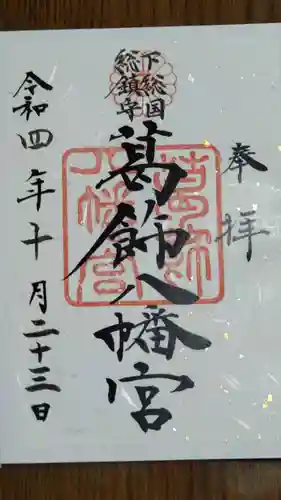 奉拝
下総国
総鎮守
葛飾八幡宮
葛飾
八幡宮
令和四年十月二十三日